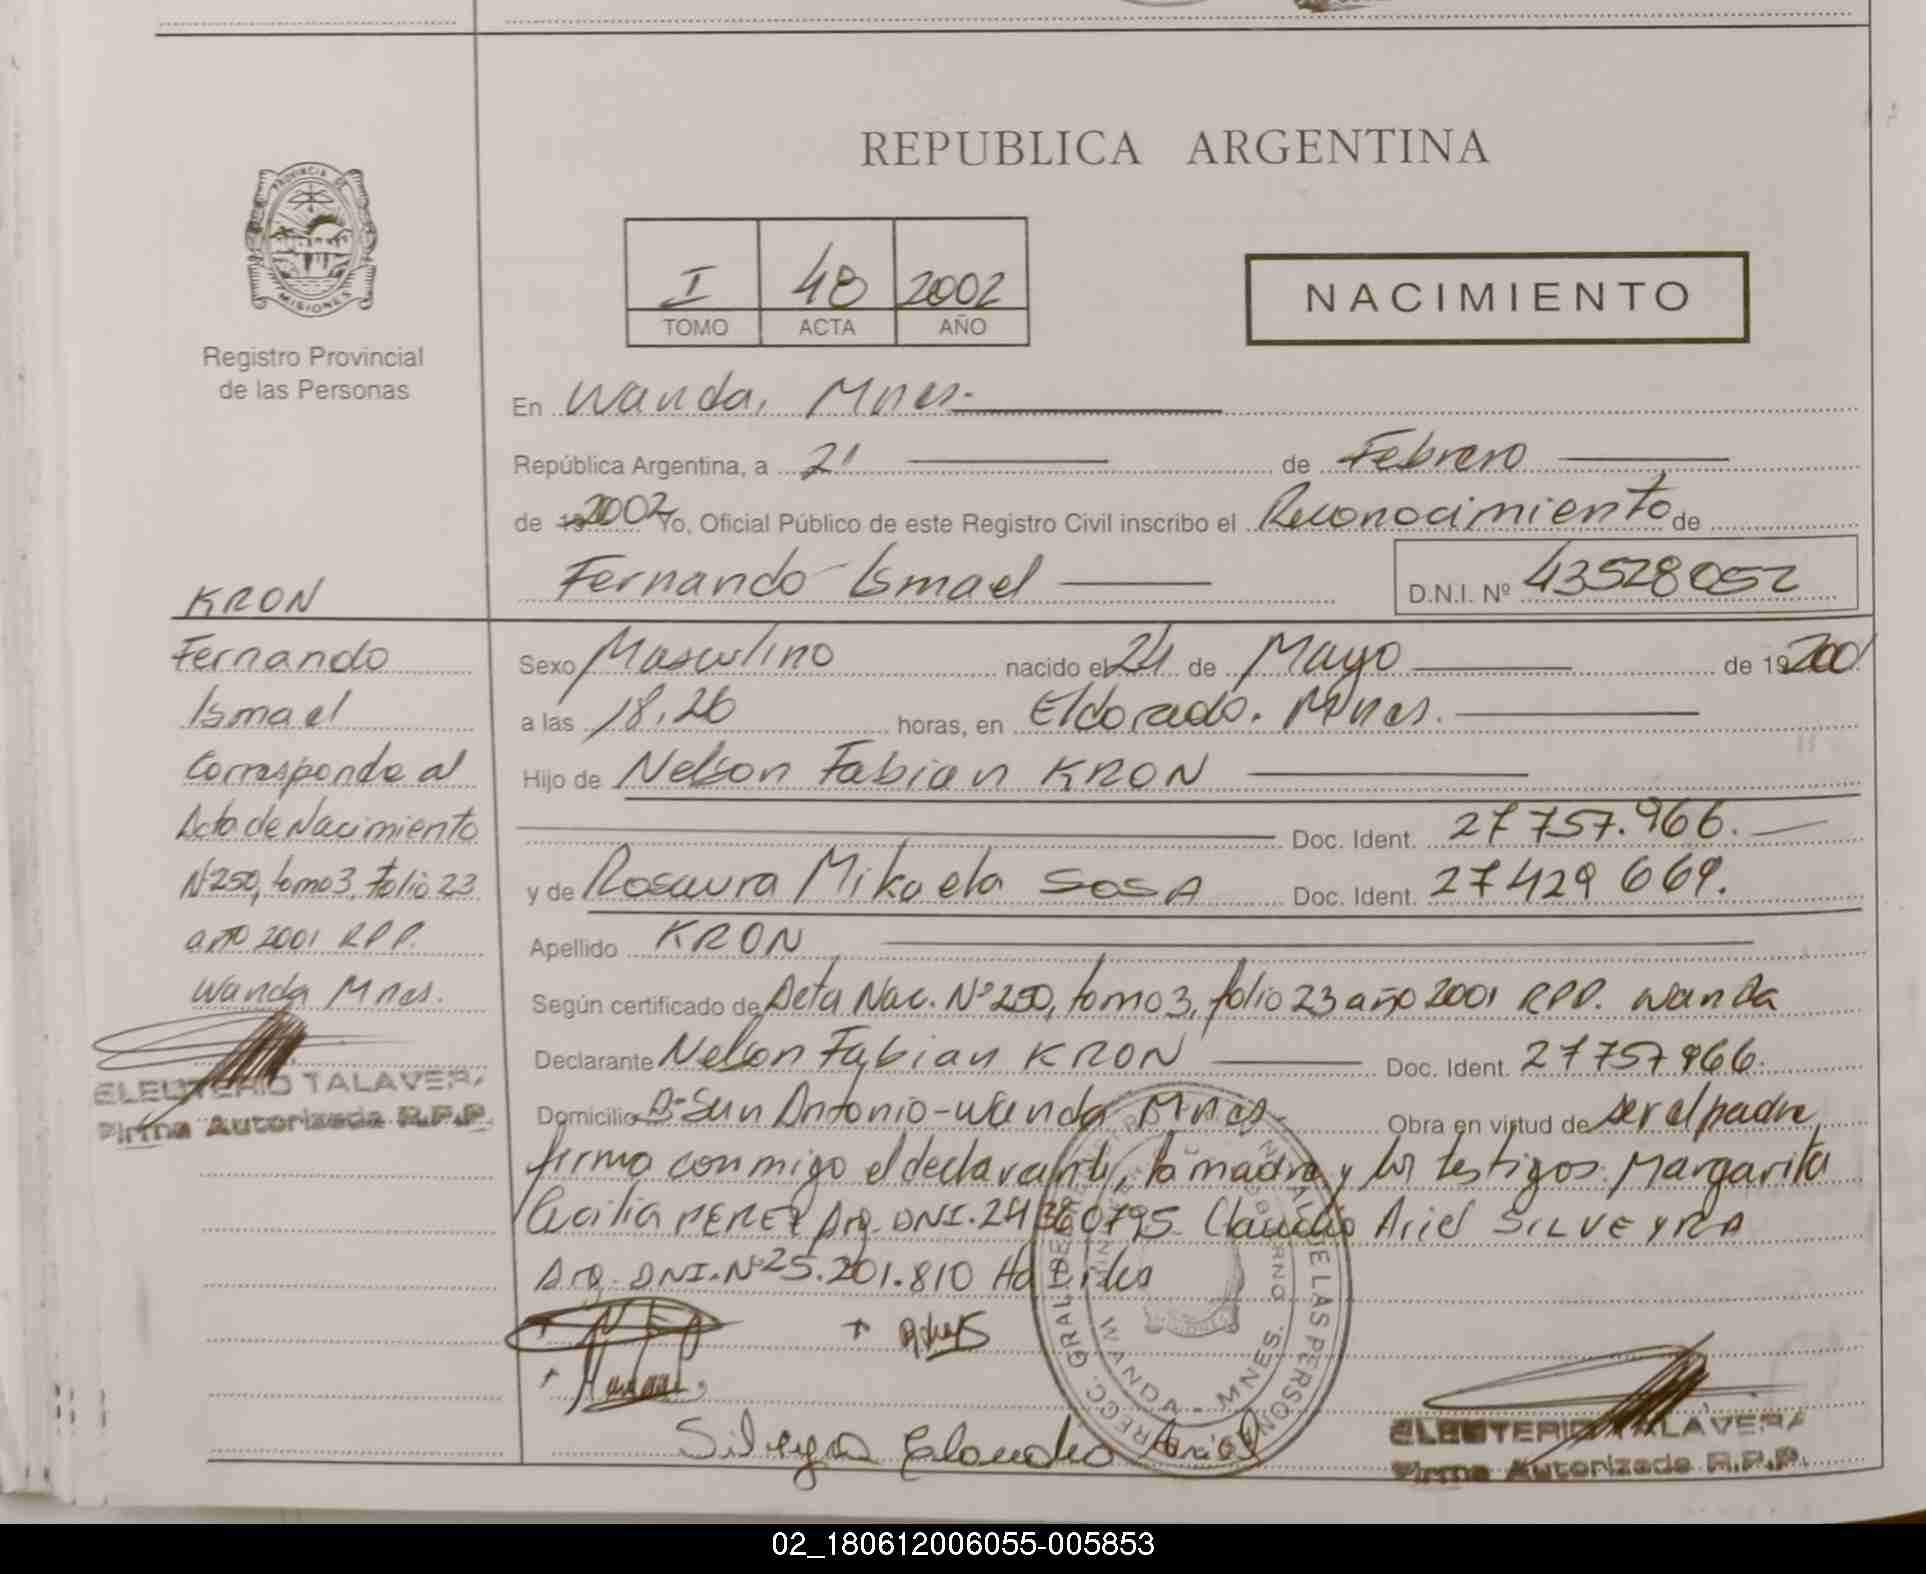 REPUBLICA ARGENTINA
PROVINCIA DE
MISIONES
Registro Provincial
de las Personas
I 48 2002
TOMO ACTA AÑO
NACIMIENTO
En Wanda, Mnes.
República Argentina, a 21 de Febrero
de 19 2002 Yo, Oficial Público de este Registro Civil inscribo el Reconocimiento de
Fernando Ismael D.N.I. Nº 43528052
Sexo Masculino nacido el 24 de Mayo de 19 2001
a las 18,26 horas, en Eldorado. Mnes.
Hijo de Nelson Fabian KRON
Doc. Ident. 27757.966.
y de Rosaura Mikaela SOSA Doc. Ident. 27429 669.
Apellido KRON
Según certificado de Acta Nac. Nº 250, tomo 3, folio 23 año 2001 RPP. Wanda
Declarante Nelson Fabian KRON Doc. Ident. 27757966.
Domicilio Bº San Antonio - Wanda Mnes. Obra en virtud de ser el padre,
firma conmigo el declarante, la madre y los testigos: Margarita
Cecilia PEREZ Arg. DNI. 24360795 Claudio Ariel SILVEYRA
Arg. DNI. Nº 25.201.810 Habiles
Silveyra Claudio Ariel
ELEUTERIO TALAVERA
Firma Autorizada R.P.P.
KRON
Fernando
Ismael
Corresponde al
Acta de Nacimiento
Nº 250, tomo 3, folio 23
año 2001 RPP.
Wanda Mnes.
ELEUTERIO TALAVERA
Firma Autorizada R.P.P.
WANDA - MNES.
02_180612006055-005853